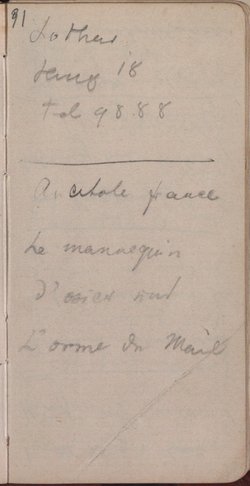 91
Lothar
18
Tel 98.88
Anatole France
Le mannequin
d'osier und
L'orme du Mail